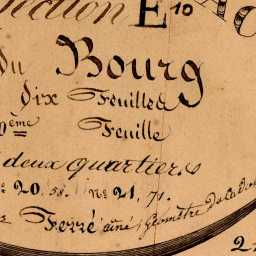 Section E 10
du Bourg
dix Feuilles
ème Feuille
deux quartiers
20. 58. N° 21, 71.
Ferré aîné Géomètre du Cadas